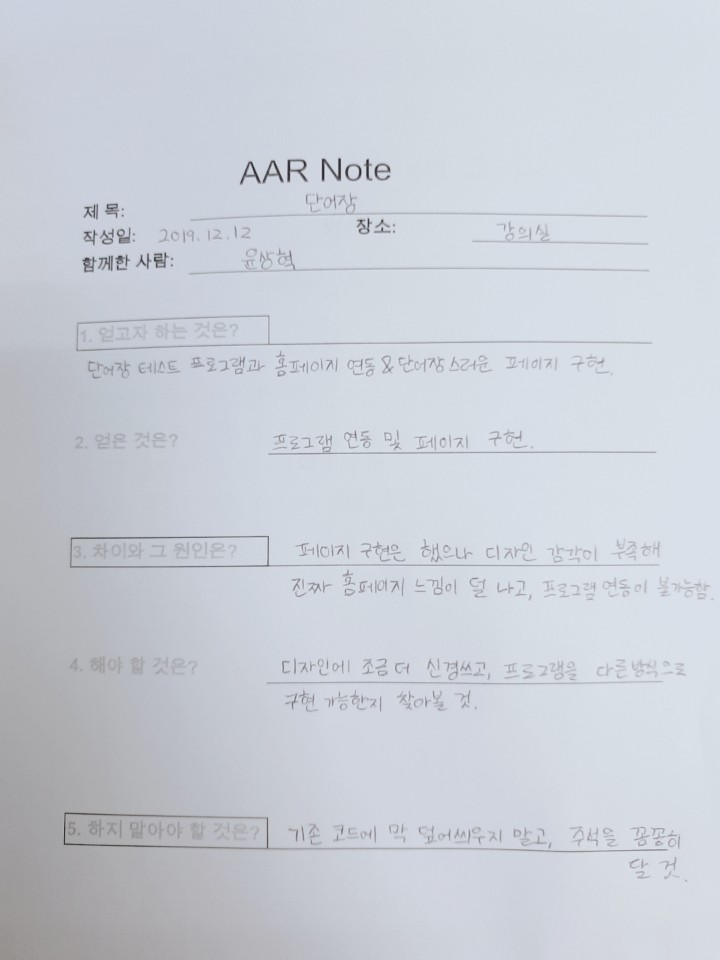 AAR Note
제 목: 단어장
작성일: 2019.12.12 장소: 강의실
함께한 사람: 윤상혁
1. 얻고자 하는 것은?
단어장 테스트 프로그램과 홈페이지 연동 & 단어장스러운 페이지 구현.
2. 얻은 것은? 프로그램 연동 및 페이지 구현.
3. 차이와 그 원인은? 페이지 구현은 했으나 디자인 감각이 부족해
진짜 홈페이지 느낌이 덜 나고, 프로그램 연동이 불가능함.
4. 해야 할 것은? 디자인에 조금 더 신경쓰고, 프로그램을 다른방식으로
구현 가능한지 찾아볼 것.
5. 하지 말아야 할 것은? 기존 코드에 막 덮어씌우지 말고, 주석을 꼼꼼히
달 것.